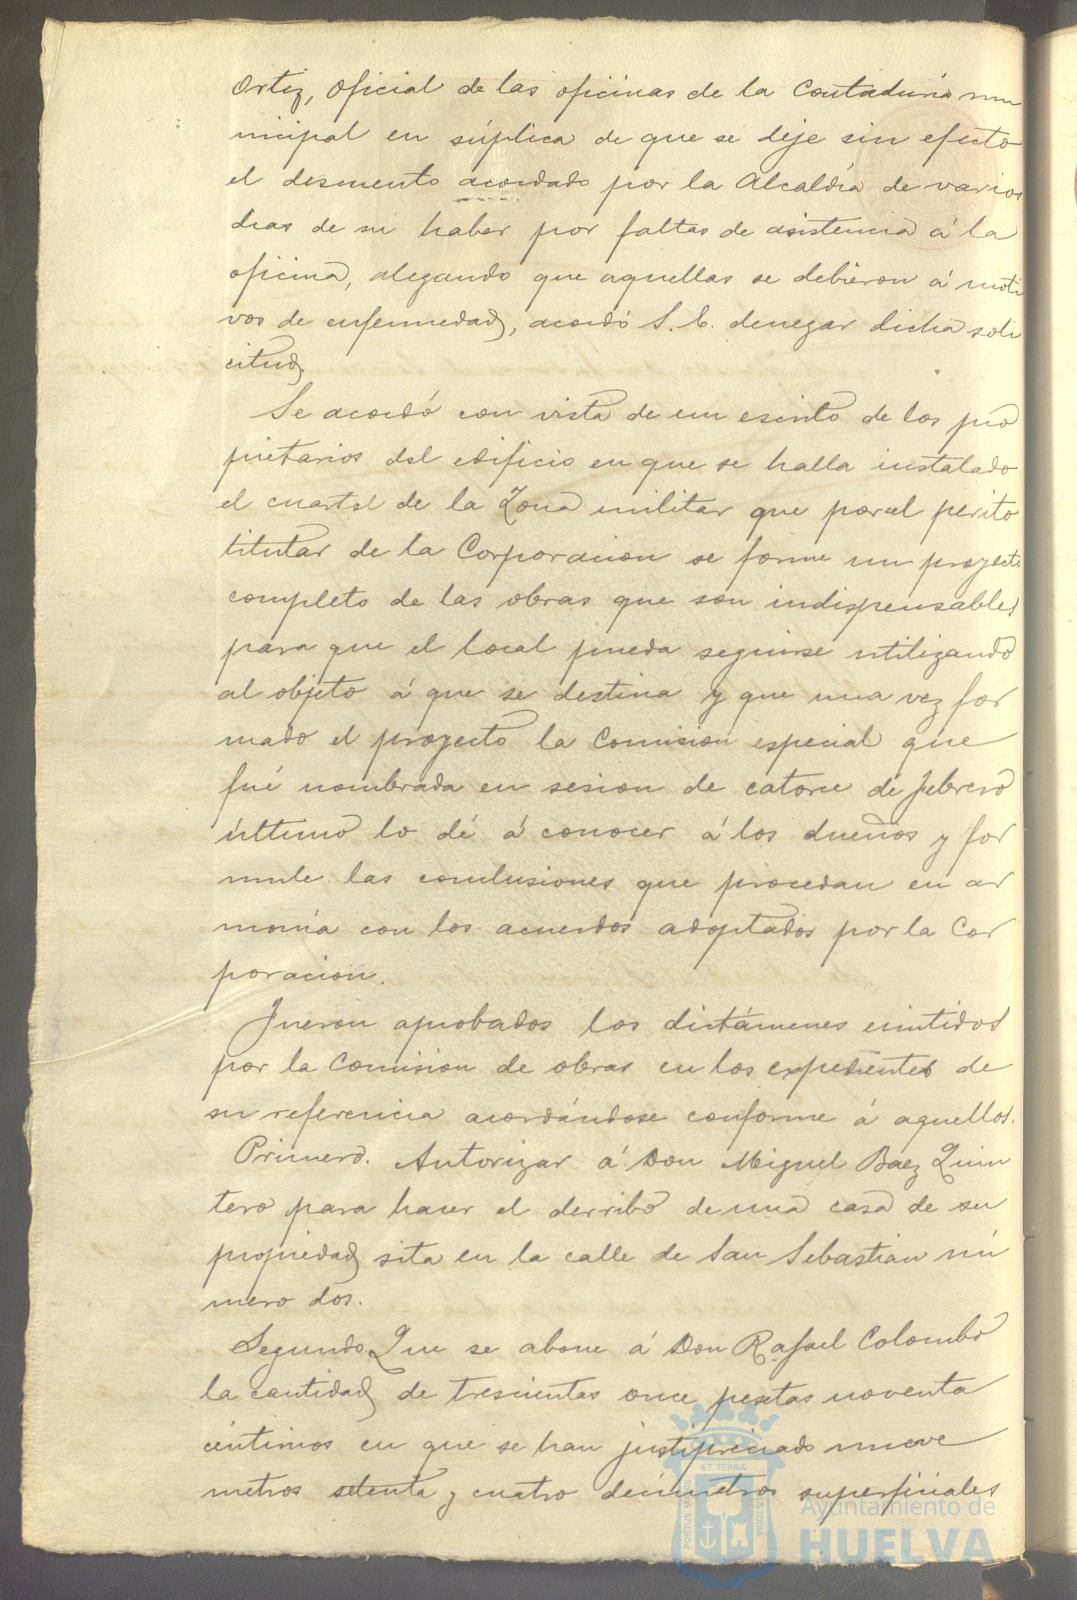 Ortiz, oficial de las oficinas de la Contaduría mu
nicipal en súplica de que se deje sin efecto
el descuento acordado por la Alcaldía de varios
dias de su haber por faltas de asistencia á la
oficina, alegando que aquellas se debieron á moti
vos de enfermedad, acordó S. E. denegar dicha soli
citud.
Se acordó con vista de un escrito de los pro
pietarios del edificio en que se halla instalado
el cuartel de la Zona militar que por el perito
titular de la Corporacion se forme un proyecto
completo de las obras que son indispensables
para que el local pueda seguirse utilizando
al objeto á que se destina y que una vez for
mado el proyecto la Comision especial que
fué nombrada en sesion de catorce de Febrero
último lo dé á conocer á los dueños y for
mule las conclusiones que procedan en ar
monía con los acuerdos adoptados por la Cor
poracion.
Fueron aprobados los dictámenes emitidos
por la Comision de obras en los expedientes de
su referencia acordándose conforme á aquellos.
Primero. Autorizar á Don Miguel Baez Quin
tero para hacer el derribo de una casa de su
propiedad sita en la calle de San Sebastian nú
mero dos.
Segundo. Que se abone á Don Rafael Colombo
la cantidad de trescientas once pesetas noventa
céntimos en que se han justipreciado nueve
metros setenta y cuatro decímetros superficiales
PORTUS MARIS ET TERRÆ CUSTODIA
Ayuntamiento de
HUELVA